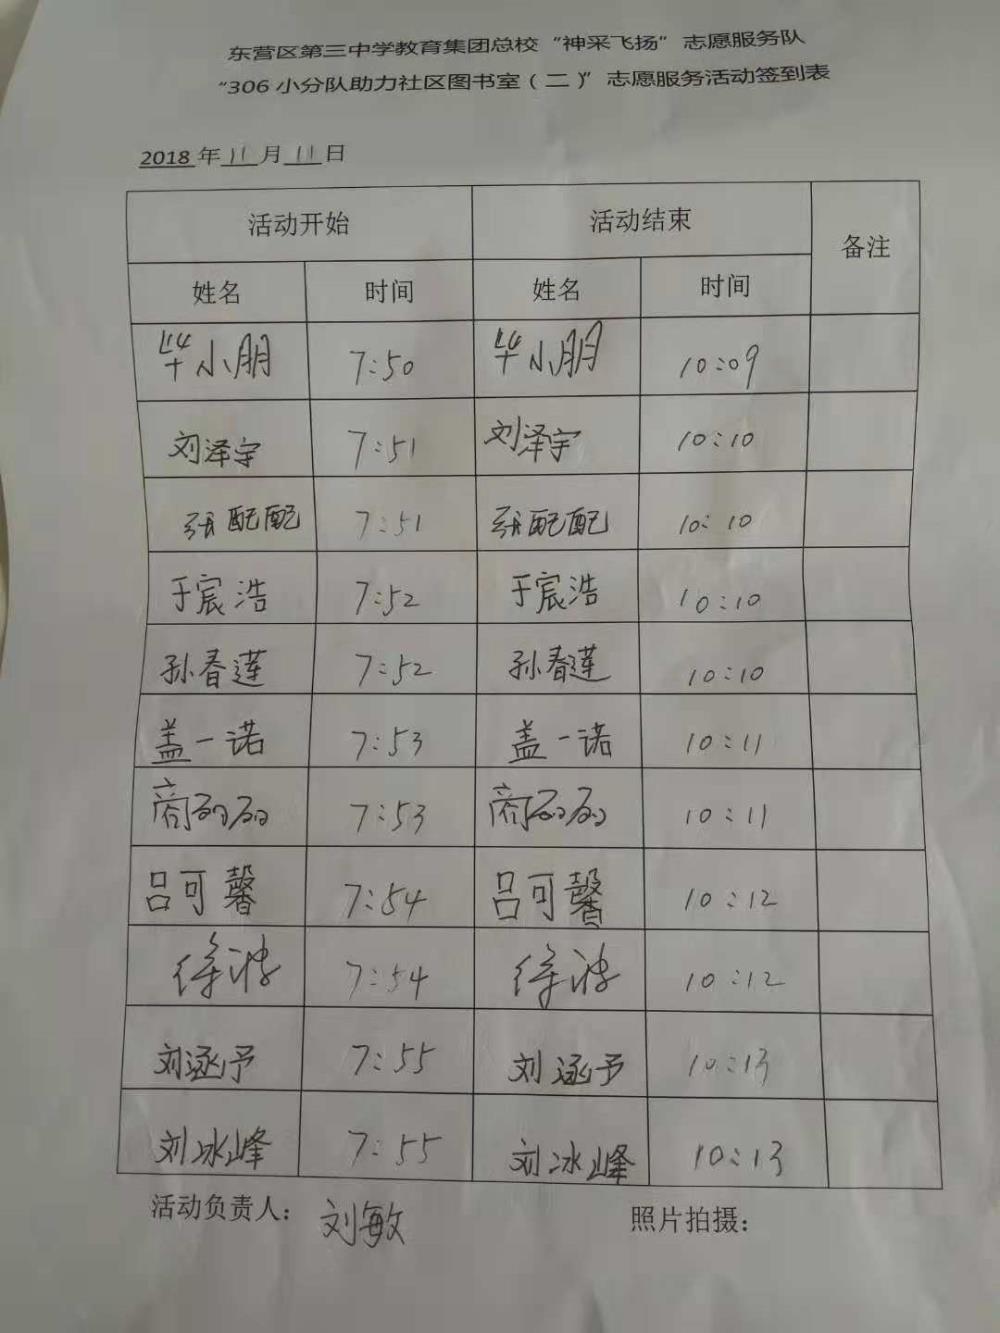 东营区第三中学教育集团总校“神采飞扬”志愿服务队
“306 小分队助力社区图书室（二）”志愿服务活动签到表
2018 年 11 月 11 日
活动开始 活动结束 备注
姓名 时间 姓名 时间
毕小朋 7:50 毕小朋 10:09
刘泽宇 7:51 刘泽宇 10:10
张配配 7:51 张配配 10:10
于宸浩 7:52 于宸浩 10:10
孙春莲 7:52 孙春莲 10:10
盖一诺 7:53 盖一诺 10:11
商 7:53 商 10:11
吕可馨 7:54 吕可馨 10:12
徐波 7:54 徐波 10:12
刘涵予 7:55 刘涵予 10:13
刘冰峰 7:55 刘冰峰 10:13
活动负责人：刘敏 照片拍摄：